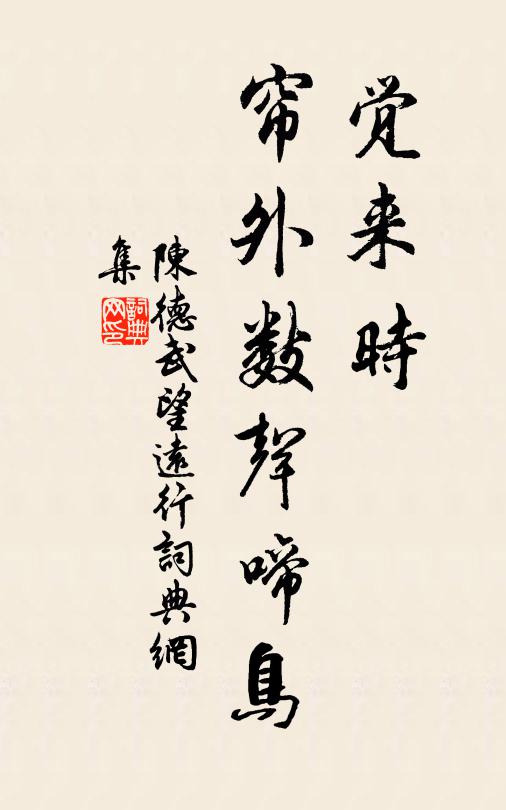 觉来時
帘外数聲啼鳥
陳德武望遠行詞典網
集
詞典网印